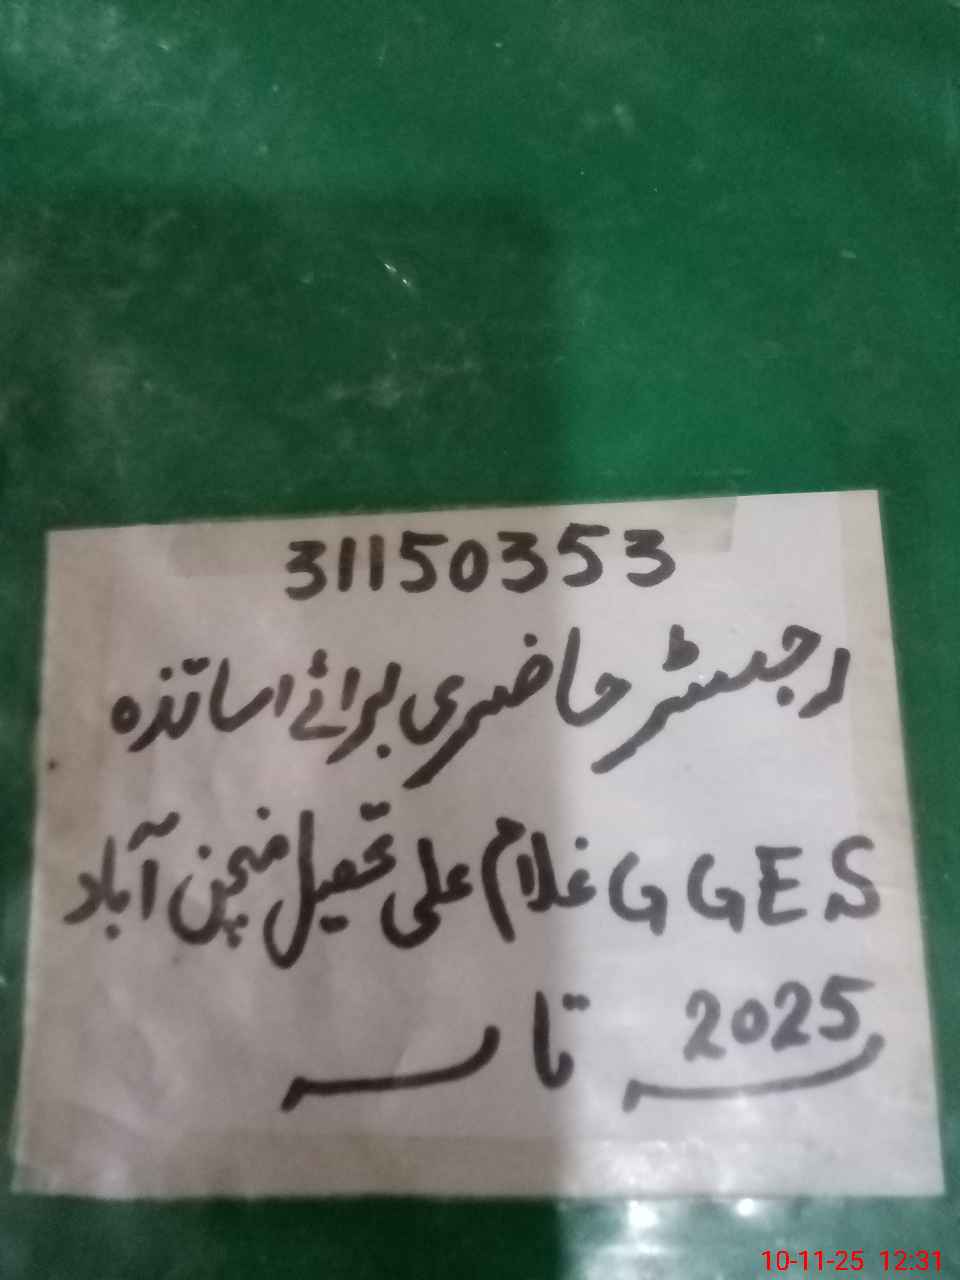 31150353
رجسٹر حاضری برائے اساتذہ
GGES غلام علی تحصیل منچن آباد
2025 تا
10-11-25 12:31